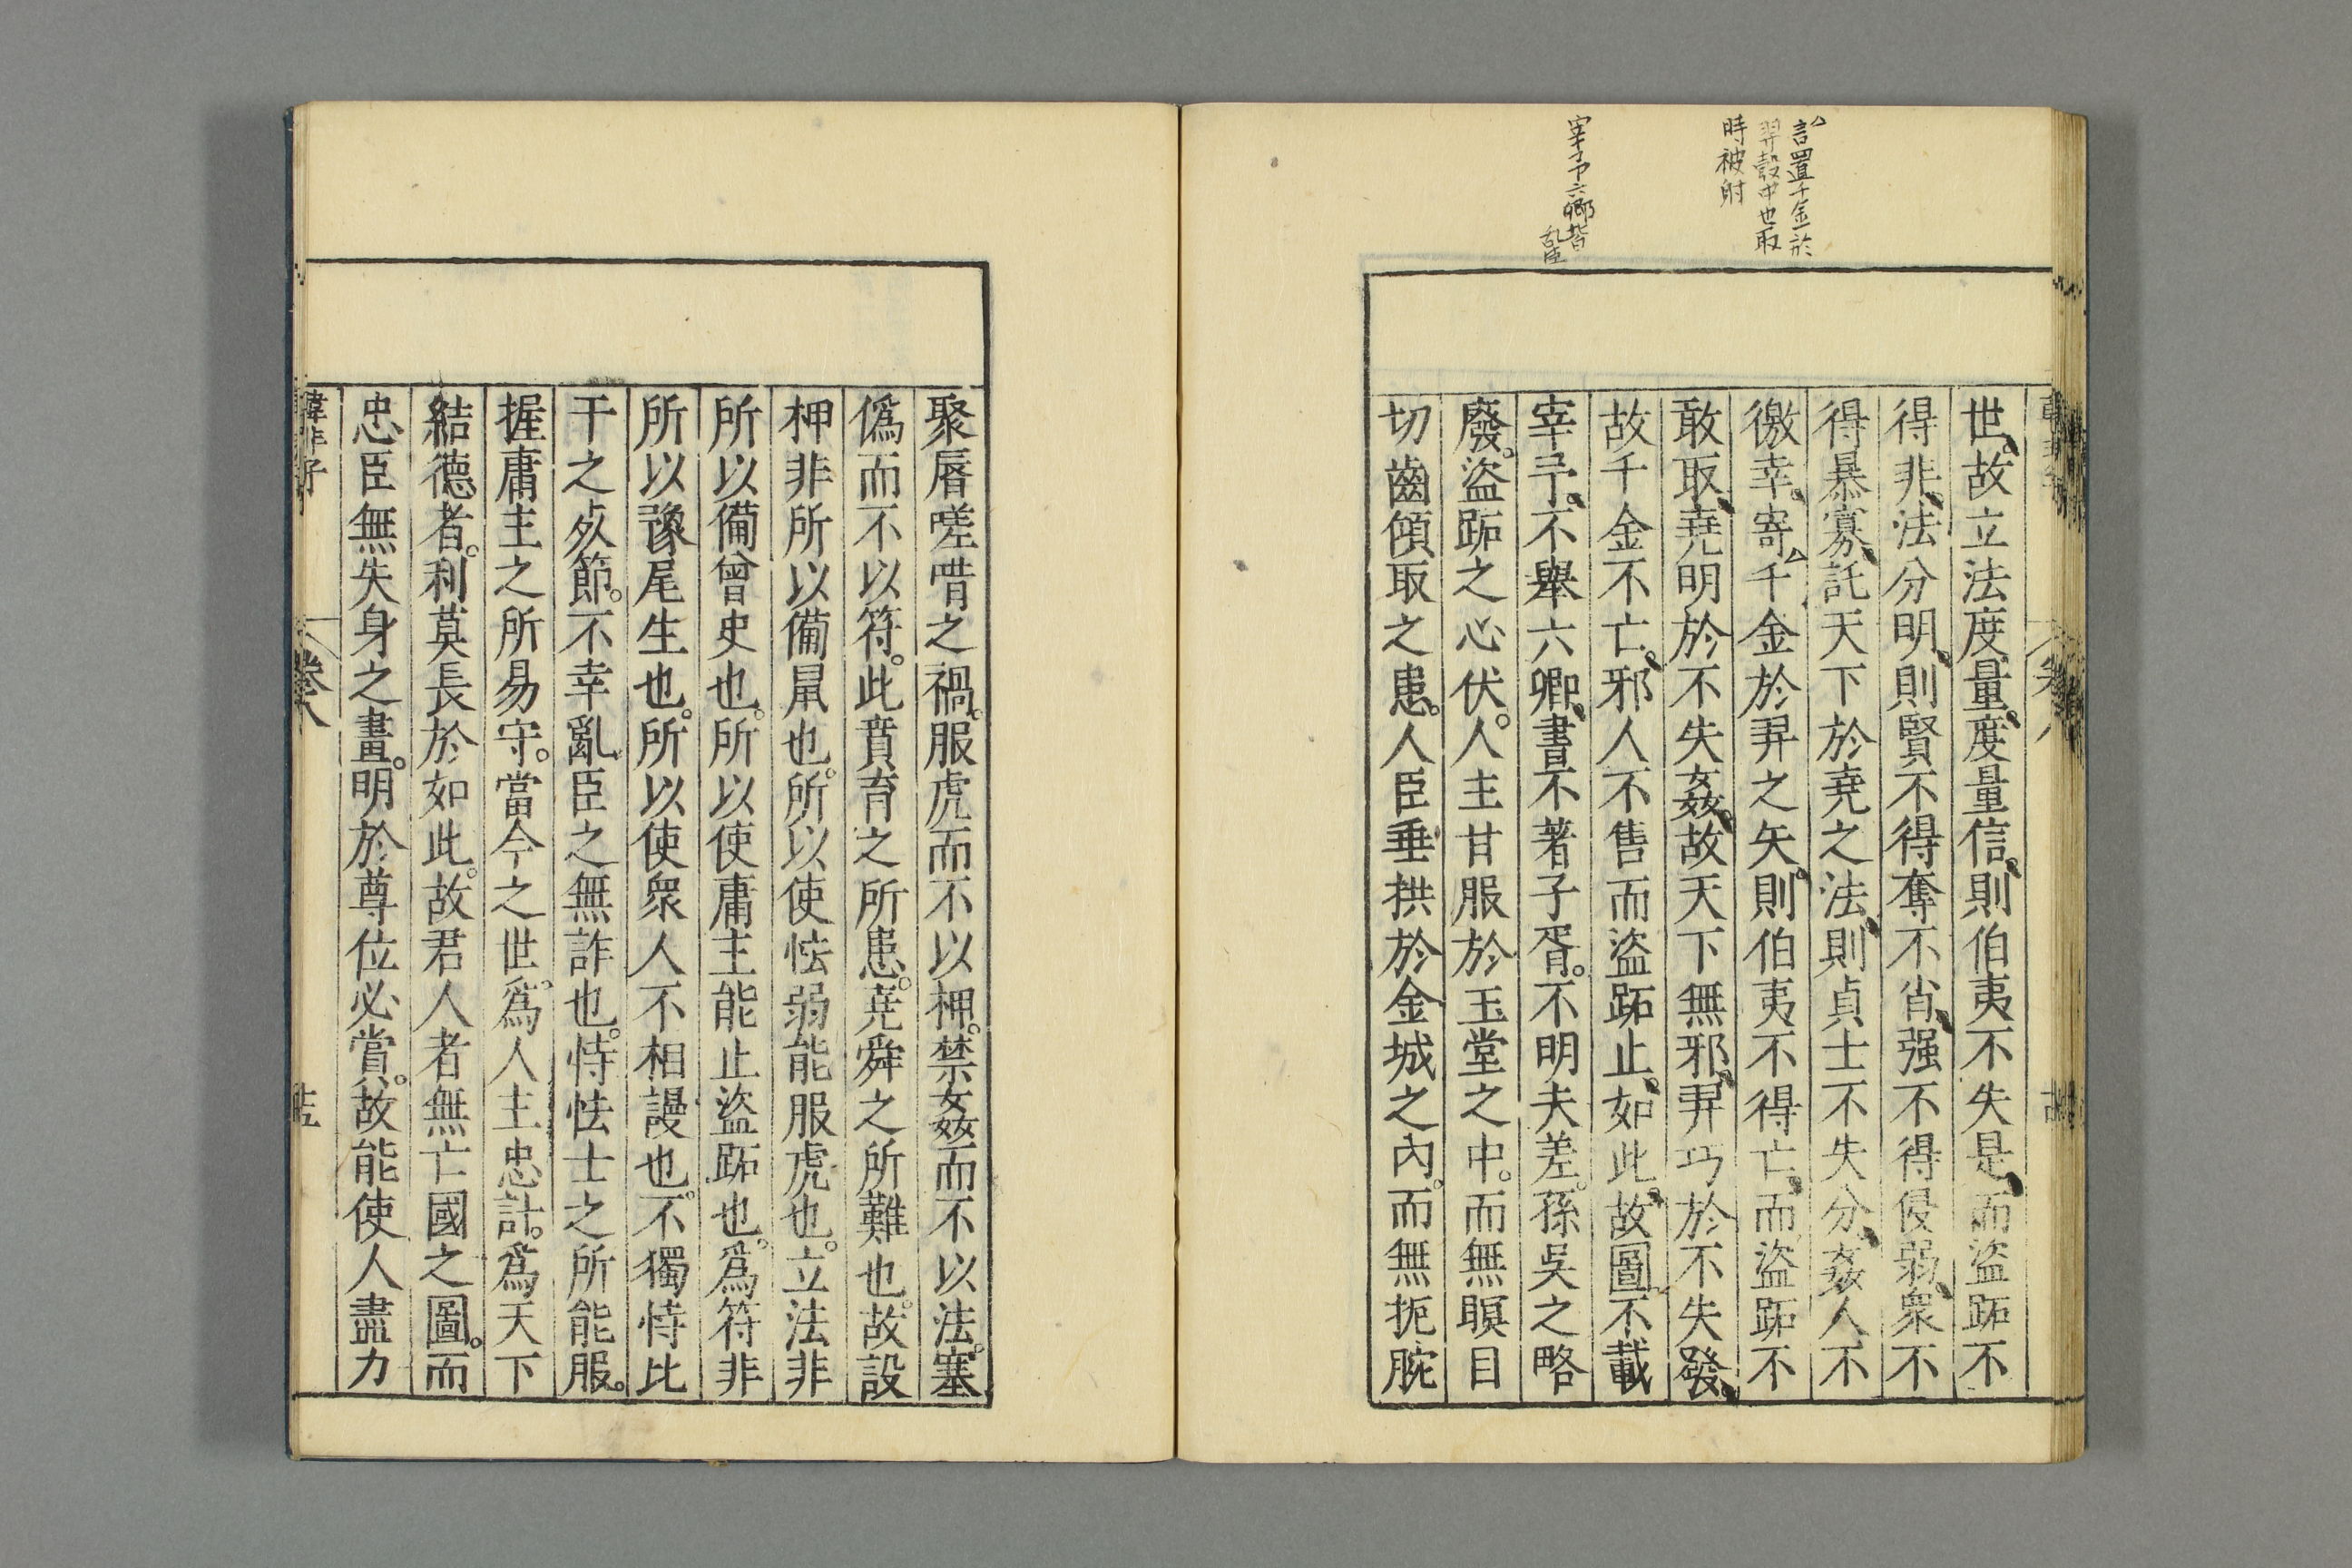 言置千金於
羿彀中也取
時被射
宰予六卿皆
乱臣
世故立法度量度量信則伯夷不失是而盜跖不
得非法分明則賢不得奪不肖强不得侵弱衆不
得暴寡託天下於堯之法則貞士不失分姦人不
徼幸寄千金於羿之矢則伯夷不得亡而盜跖不
敢取堯明於不失姦故天下無邪羿巧於不失發
故千金不亡邪人不售而盜跖止如此故圖不載
宰予。不舉六卿書不著子胥。不明夫差。孫吳之略
廢。盜跖之心伏。人主甘服於玉堂之中。而無瞋目
切齒傾取之患。人臣垂拱於金城之內。而無扼腕
聚脣嗟唶之禍。服虎而不以柙。禁姦而不以法。塞
僞而不以符。此賁育之所患。堯舜之所難也。故設
柙非所以備鼠也。所以使怯弱能服虎也。立法非
所以備曾史也。所以使庸主能止盜跖也。爲符非
所以豫尾生也。所以使衆人不相謾也。不獨恃比
干之死節。不幸亂臣之無詐也。恃怯士之所能服。
握庸主之所易守。當今之世。爲人主忠計。爲天下
結德者。利莫長於如此。故君人者無亡國之圖。而
忠臣無失身之畫。明於尊位必賞。故能使人盡力
韓非子 卷八